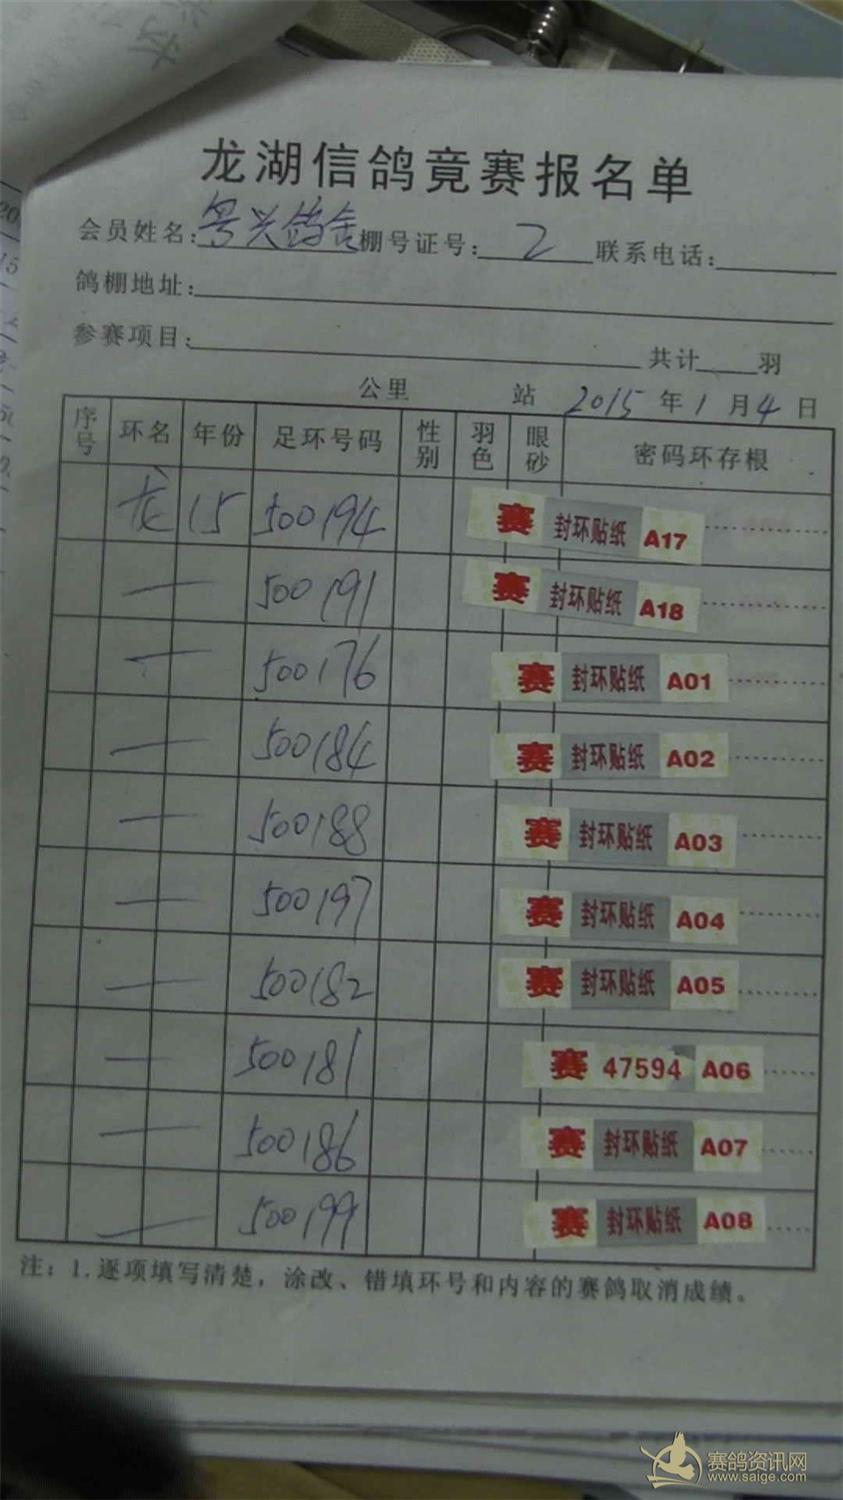 龙湖信鸽竟赛报名单
会员姓名:粤兴鸽舍棚号证号:2联系电话:
鸽棚地址:
参赛项目: 共计 羽
公里 站 2015年1月4日
序号 环名 年份 足环号码 性别 羽色 眼砂 密码环存根
龙 15 500194 赛 封环贴纸 A17
一 500191 赛 封环贴纸 A18
一 500176 赛 封环贴纸 A01
一 500184 赛 封环贴纸 A02
一 500188 赛 封环贴纸 A03
一 500197 赛 封环贴纸 A04
一 500182 赛 封环贴纸 A05
一 500181 赛 47594 A06
一 500186 赛 封环贴纸 A07
一 500199 赛 封环贴纸 A08
注:1.逐项填写清楚,涂改、错填环号和内容的赛鸽取消成绩。
赛鸽资讯网
www.saige.com